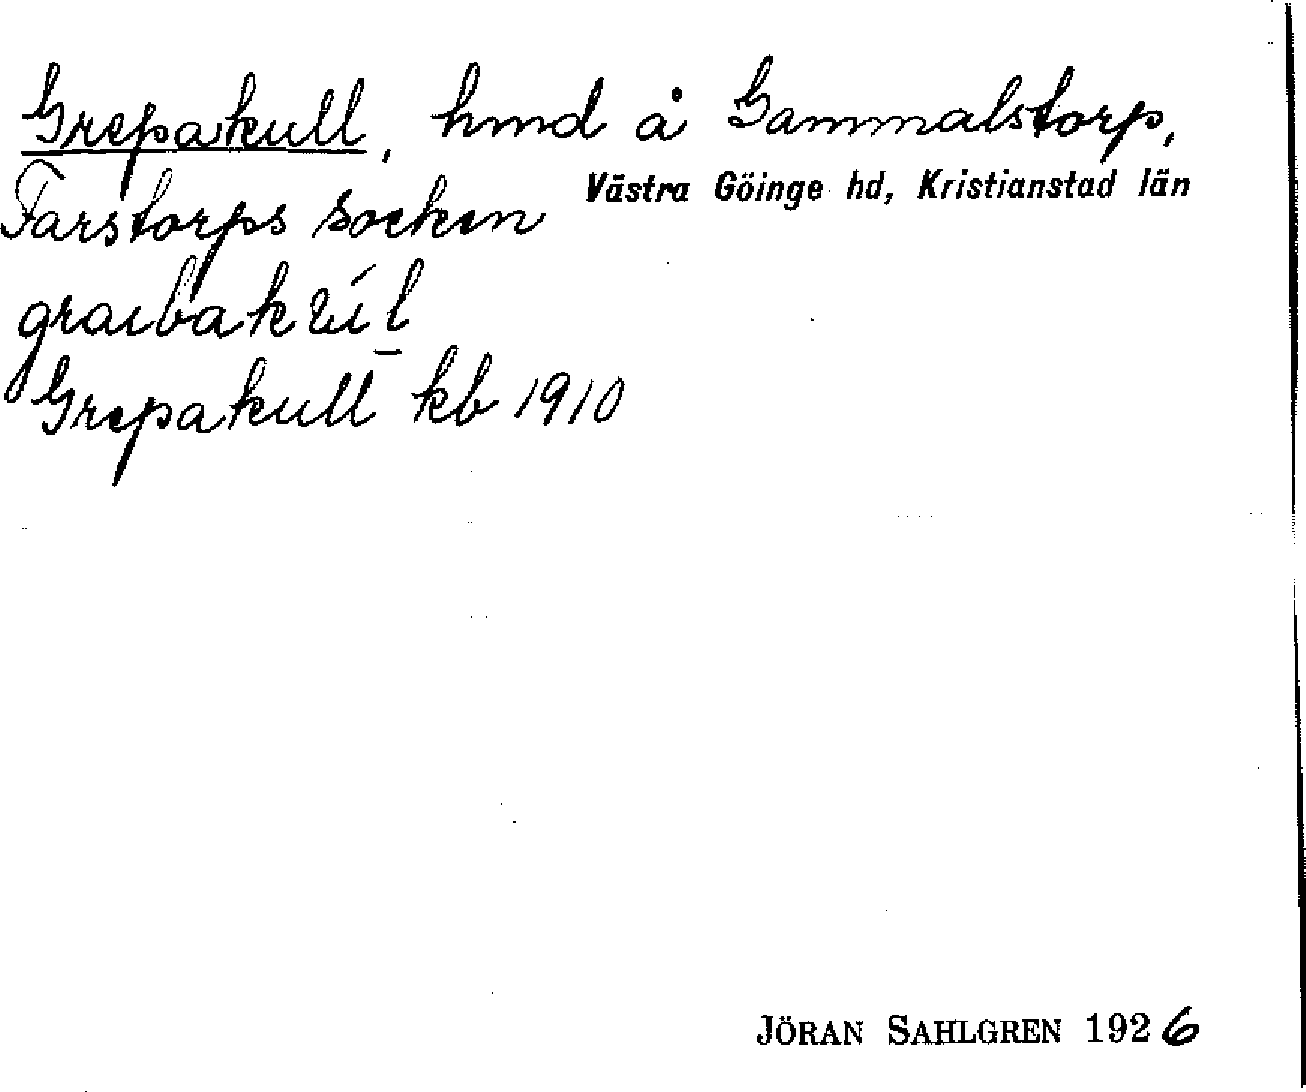 Grepakull, hmd å Gammalstorp,
Farstorps socken Västra Göinge hd, Kristianstad län
Grepakull kb 1910
JÖRAN SAHLGREN 1926